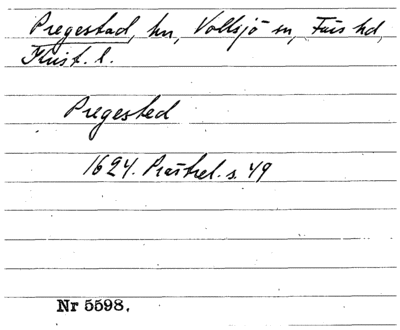 Pregestad, hn, Vollsjö sn, Färs hd,
Krist. l.
Pregested
1624. Prästrel. s. 49
Nr 5598.